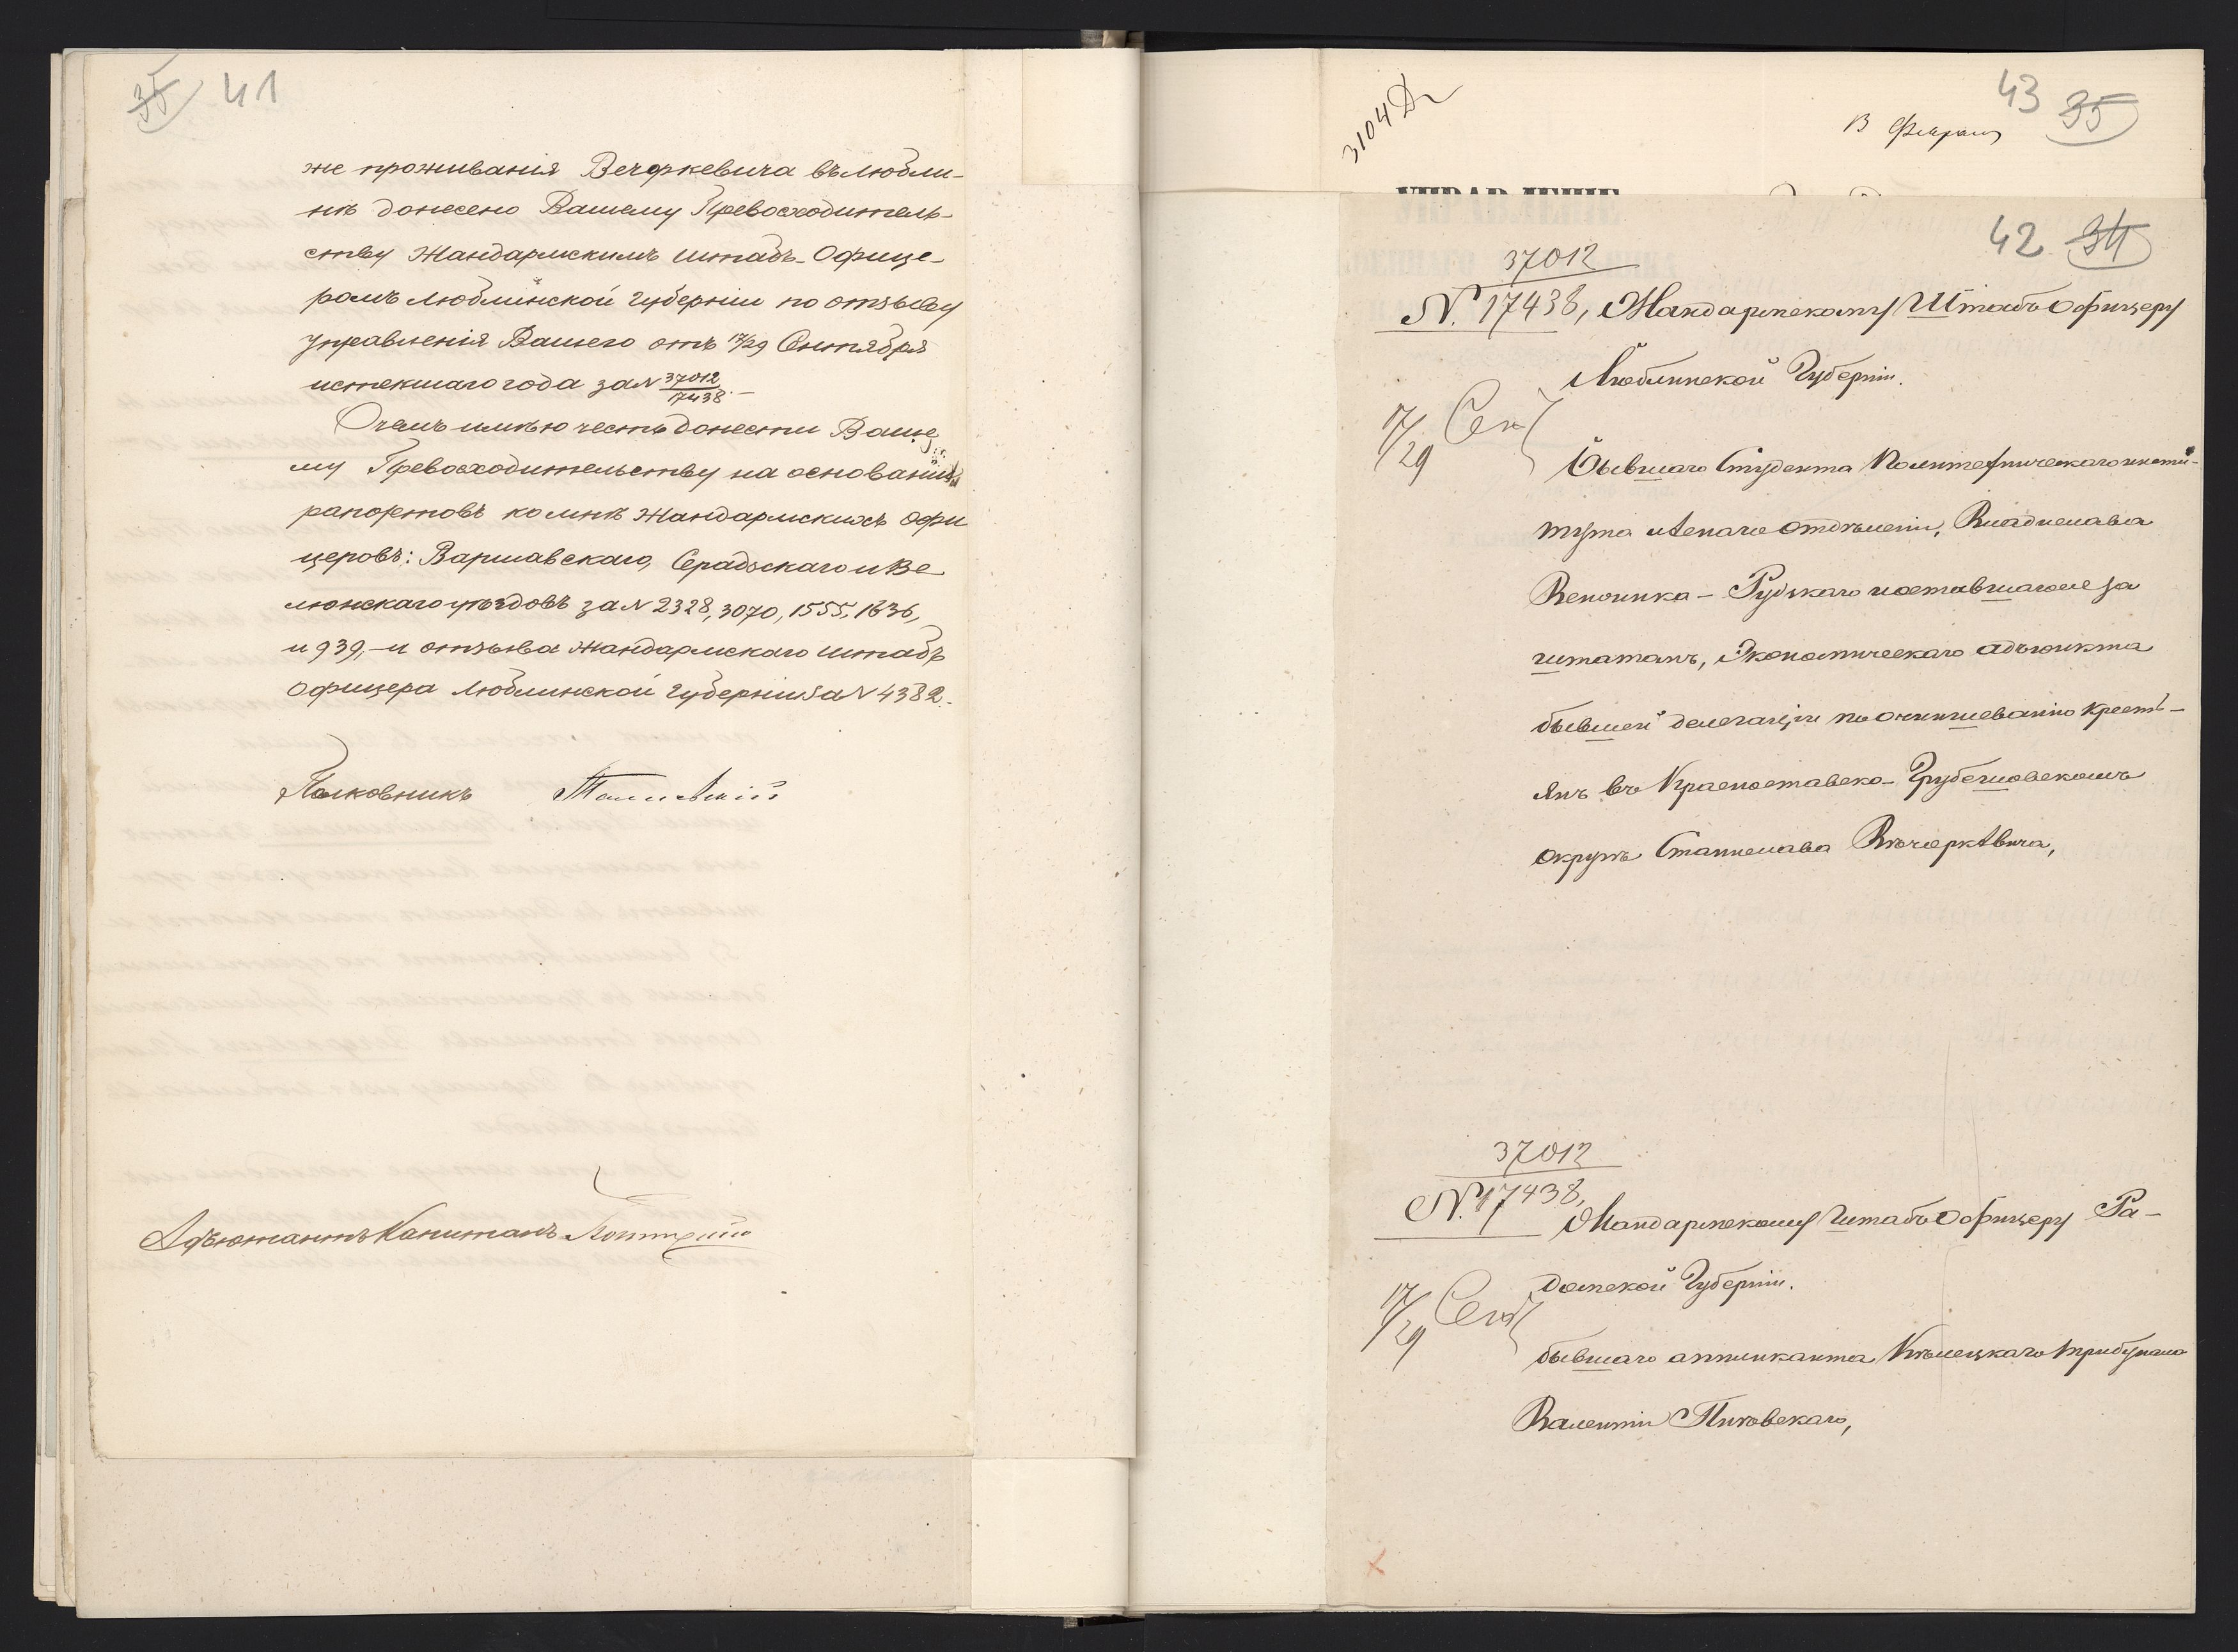 35 41
же проживанія Вечоркевича въ Любли-
нѣ донесено Вашему Превосходитель-
ству Жандармскимъ Штабъ-Офице-
ромъ Люблинской Губерніи по отзыву
Управленія Вашего отъ 17/29 Сентября
истекшаго года за N 37012/17438.-
О чемъ имѣю честь донести Ваше
му Превосходительству на основаніи
рапортовъ ко мнѣ Жандармскихъ Офи
церовъ: Варшавскаго, Серадзскаго и Ве
люнскаго уѣздовъ за N 2328, 3070, 1555, 1636,
и 939,-и отзыва Жандармскаго Штабъ
Офицера Люблинской Губерніи за N 4382.
Полковникъ
Адъютантъ Капитанъ
3104
43 35
13 Февраля
УПРАВЛЕНІЕ
42 34
37012
N. 17438, Жандармскому Штабъ Офицеру
Люблинской Губерніи.
17/29 Сен
Бывшаго Студента Политехническаго инсти-
тута Лѣснаго отдѣленія, Владислава
Рудзкаго и оставшагося за
штатомъ, Экономическаго адъюнкта
бывшей делегаціи по очиншеванію крестъ-
янъ въ Красноставско-Грубешовскомъ
округѣ Станислава Вѣчоркевича,
37012
N. 17438,
Жандармскому Штабъ Офицеру Ра-
домской Губерніи.
17/29 Сен
бывшаго аппликанта Кѣлецкаго трибунала
Валентія Пиковскаго,